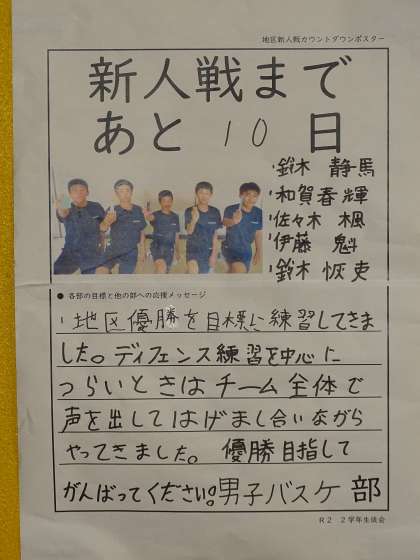 地区新人戦カウントダウンポスター
新人戦まで
あと 10 日
・鈴木 静馬
・和賀春輝
・佐々木 楓
・伊藤 魁
・鈴木 恢吏
● 各部の目標と他の部への応援メッセージ
・地区優勝を目標に練習してきま
した。ディフェンス練習を中心に
つらいときはチーム全体で
声を出してはげまし合いながら
やってきました。 優勝目指して
がんばってください!男子バスケ 部
R2 2学年生徒会